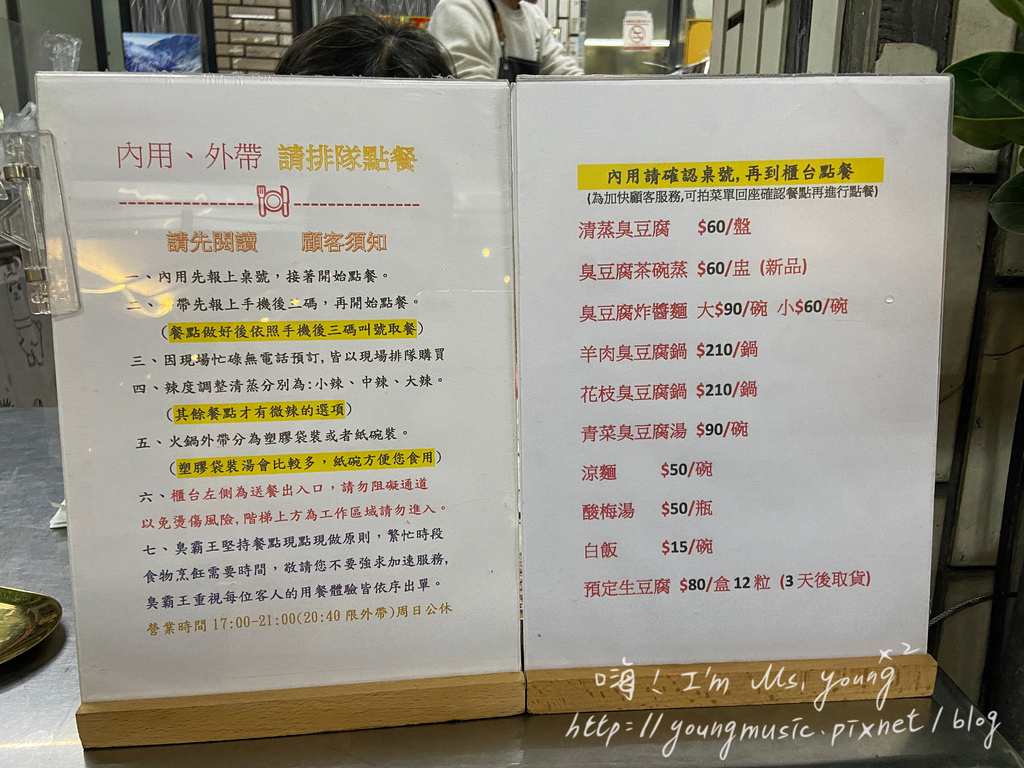 內用、外帶 請排隊點餐
請先閱讀 顧客須知
一、內用先報上桌號，接著開始點餐。
二、 帶先報上手機後三碼，再開始點餐。
(餐點做好後依照手機後三碼叫號取餐)
三、因現場忙碌無電話預訂,皆以現場排隊購買
四、辣度調整清蒸分別為:小辣、中辣、大辣。
(其餘餐點才有微辣的選項)
五、火鍋外帶分為塑膠袋裝或者紙碗裝。
(塑膠袋裝湯會比較多，紙碗方便您食用)
六、櫃台左側為送餐出入口，請勿阻礙通道
以免燙傷風險,階梯上方為工作區域請勿進入。
七、臭霸王堅持餐點現點現做原則，繁忙時段
食物烹飪需要時間，敬請您不要強求加速服務,
臭霸王重視每位客人的用餐體驗皆依序出單。
營業時間 17:00-21:00(20:40 限外帶)周日公休
內用請確認桌號,再到櫃台點餐
(為加快顧客服務,可拍菜單回座確認餐點再進行點餐)
清蒸臭豆腐 $60/盤
臭豆腐茶碗蒸 $60/盅 (新品)
臭豆腐炸醬麵 大$90/碗 小$60/碗
羊肉臭豆腐鍋 $210/鍋
花枝臭豆腐鍋 $210/鍋
青菜臭豆腐湯 $90/碗
涼麵 $50/碗
酸梅湯 $50/瓶
白飯 $15/碗
預定生豆腐 $80/盒 12 粒 (3 天後取貨)
嗨! I'm Ms. young x2
http://youngmusic.pixnet/blog